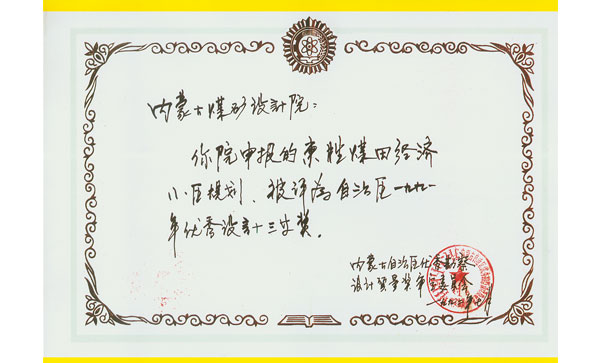 内蒙古煤矿设计院：
你院申报的东胜煤田经济
小区规划、被评为自治区一九九一
年优秀设计三等奖。
内蒙古自治区优秀勘察
设计质量奖评审委员会